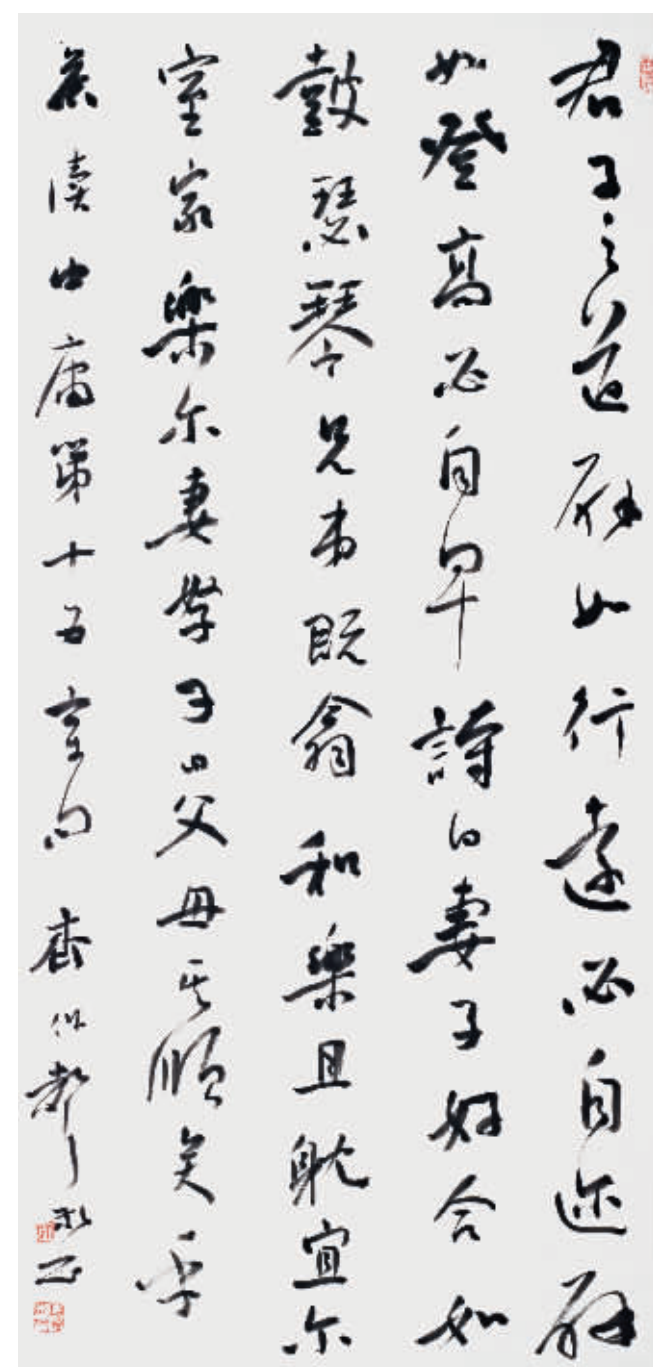 君子之道辟如行遠必自迩辟
如登高必自卑詩曰妻子好合如
鼓瑟琴兄弟既翕和樂且耽宜尔
室家樂尔妻孥子曰父母其順矣乎
讀中庸第十五章句